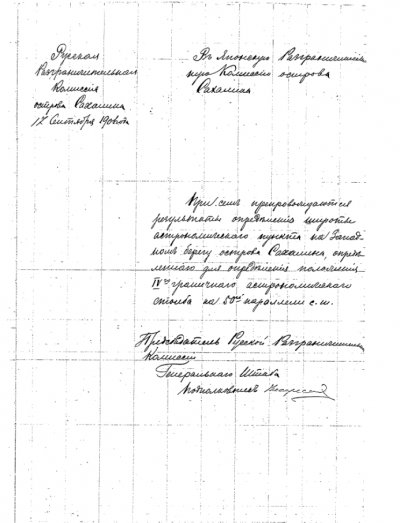 Русская
Разграничительная
Комиссія
острова Сахалина
17 Сентября 1906 года
Въ Японскую Разграничитель
ную Комиссію острова
Сахалина
При семъ препровождаются
результаты опредѣленія широты
астрономическаго пункта на Запад
номъ берегу острова Сахалина, опредѣ
для опредѣленія положенія
IVго граничнаго астрономическаго
столба на 50ой параллели с.ш.
Предсѣдатель Русской Разграничительн
Комиссіи
Генеральнаго Штаба
Подполковникъ